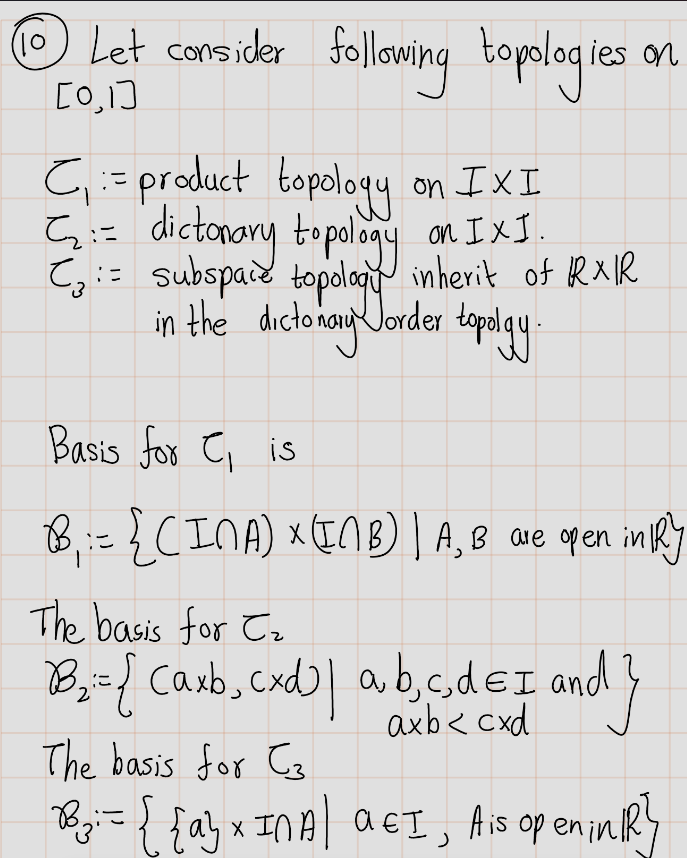 ⑩ Let consider following topologies on
[0,1]
τ₁ := product topology on I×I
τ₂ := dictonary topology on I×I.
τ₃ := subspace topology inherit of ℝ×ℝ
in the dictonary order topolgy.
Basis for τ₁ is
ℬ₁ := { (I∩A) × (I∩B) | A, B are open in ℝ}
The basis for τ₂
ℬ₂ := { (a×b, c×d) | a, b, c, d ∈ I and }
a×b < c×d
The basis for τ₃
ℬ₃ := { {a} × I∩A | a ∈ I, A is open in ℝ}